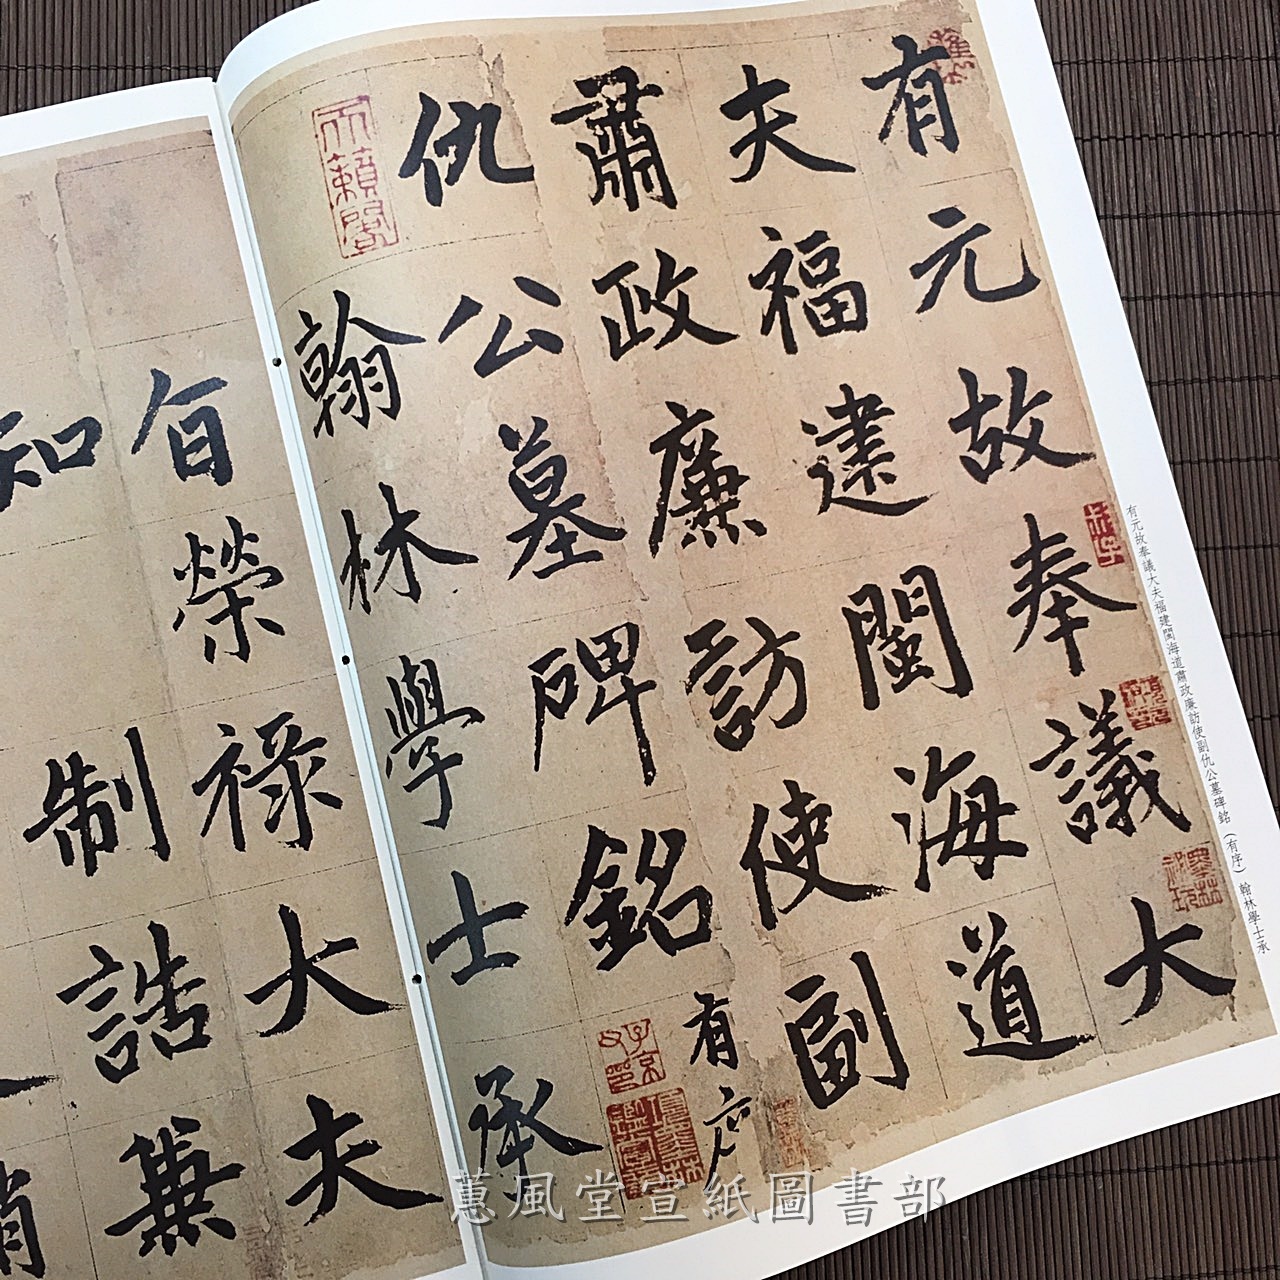 有元故奉議大
夫福建閩海道
肅政廉訪使副
仇公墓碑銘有序
翰林學士承
旨榮祿大夫
知制誥兼
天籟閣
子京
有元故奉議大夫福建閩海道肅政廉訪使副仇公墓碑銘（有序）翰林學士承
蕙風堂宣紙圖書部